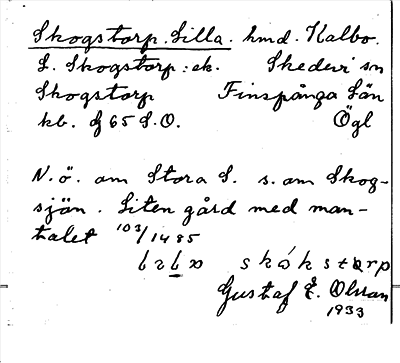 Skogstorp. Lilla. hmd. Kalbo.
L. Skogstorp : ek. Skedevi sn
Skogstorp Finspånga Län
kb. 65 S.O. Ögl
N. ö. om Stora S. s. om Skog-
sjön. Liten gård med man-
talet 103/1485
skókstorp
Gustaf E. Olsson
1933